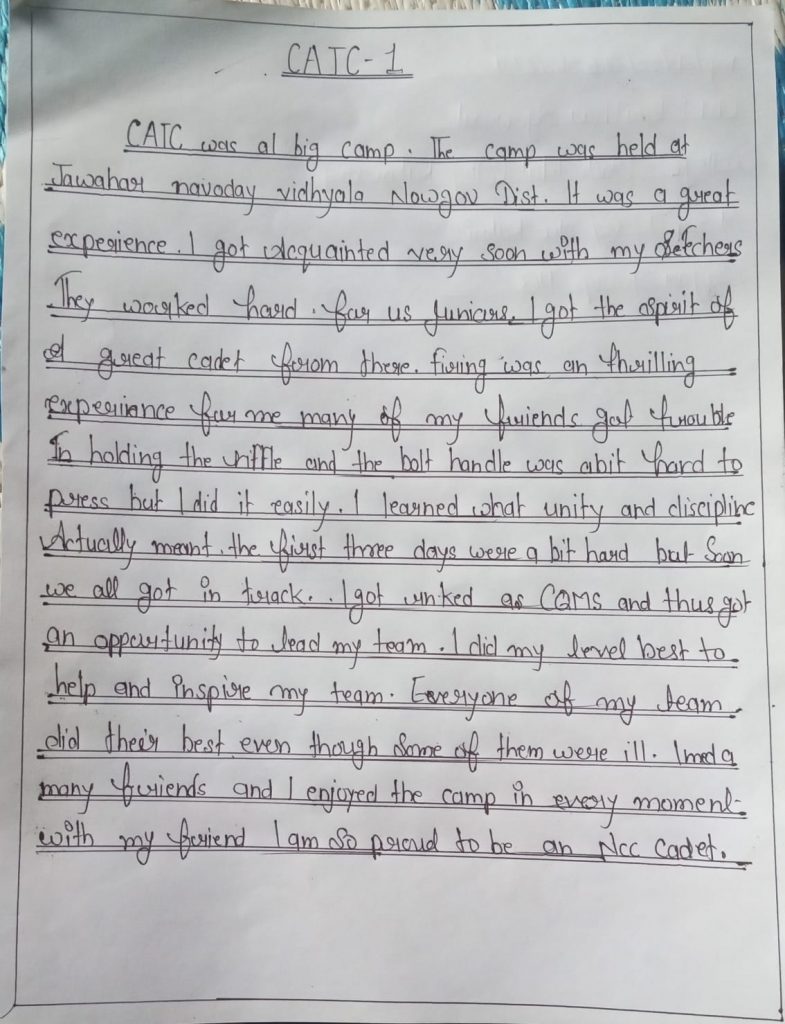 CATC-1
CATC was al big camp. The camp was held at
Jawahar navaday vidhyala Nowgov Dist. It was a great
experience. I got acquainted very soon with my
They worked hard. for us juniors. I got the spirit of
a great cadet from there. firing was an thrilling
experiance for me many of my friends gat trouble
In holding the riffle and the bolt handle was abit hard to
press but I did it easily. I learned what unity and discipline
Actually meant. the first three days were a bit hard but Soon
we all got in track. I got as CQMS and thus got
an oppartunity to lead my team. I did my level best to
help and inspire my team. Everyone of my team
did their best even though Some of them were ill. I
many friends and I enjoyed the camp in every moment
with my friend I am So proud to be an Ncc Cadet.